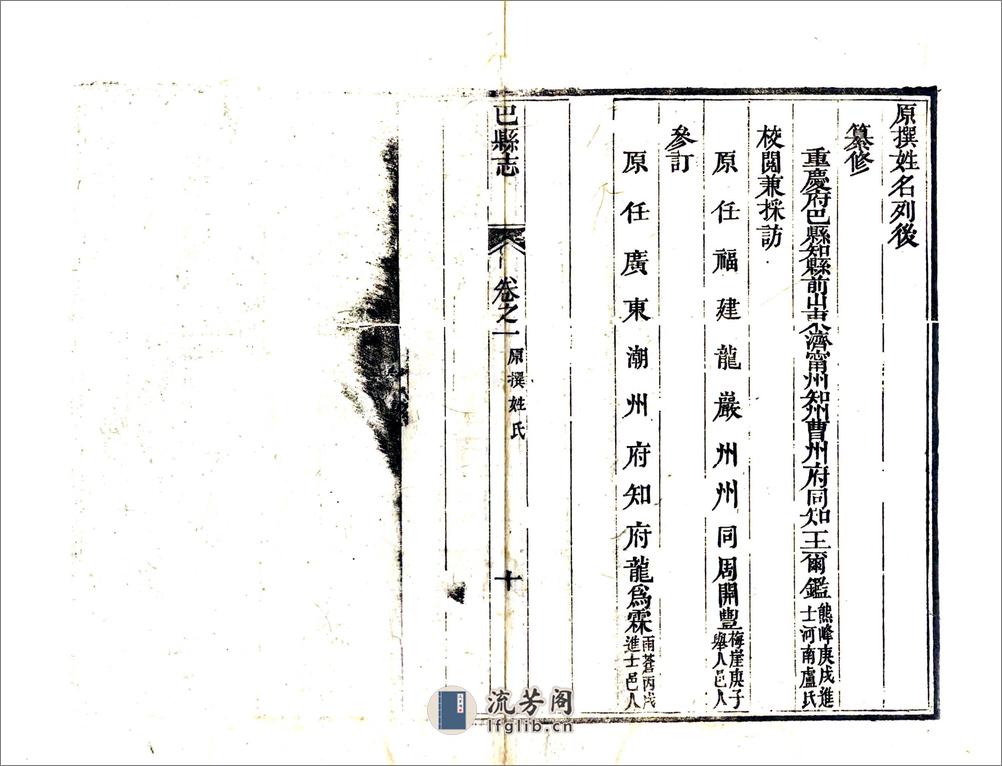 原撰姓名列後
纂修
重慶府巴縣知縣前山東濟甯州知州曹州府同知王爾鑑熊峰庚戌進
士河南盧氏
校閱兼採訪
原任福建龍巖州州同周開豐梅崖庚子
舉人邑人
參訂
原任廣東潮州府知府龍爲霖雨蒼丙戌
進士邑人
巴縣志
卷之一
原撰姓氏
十
流芳阁
lfglib.cn